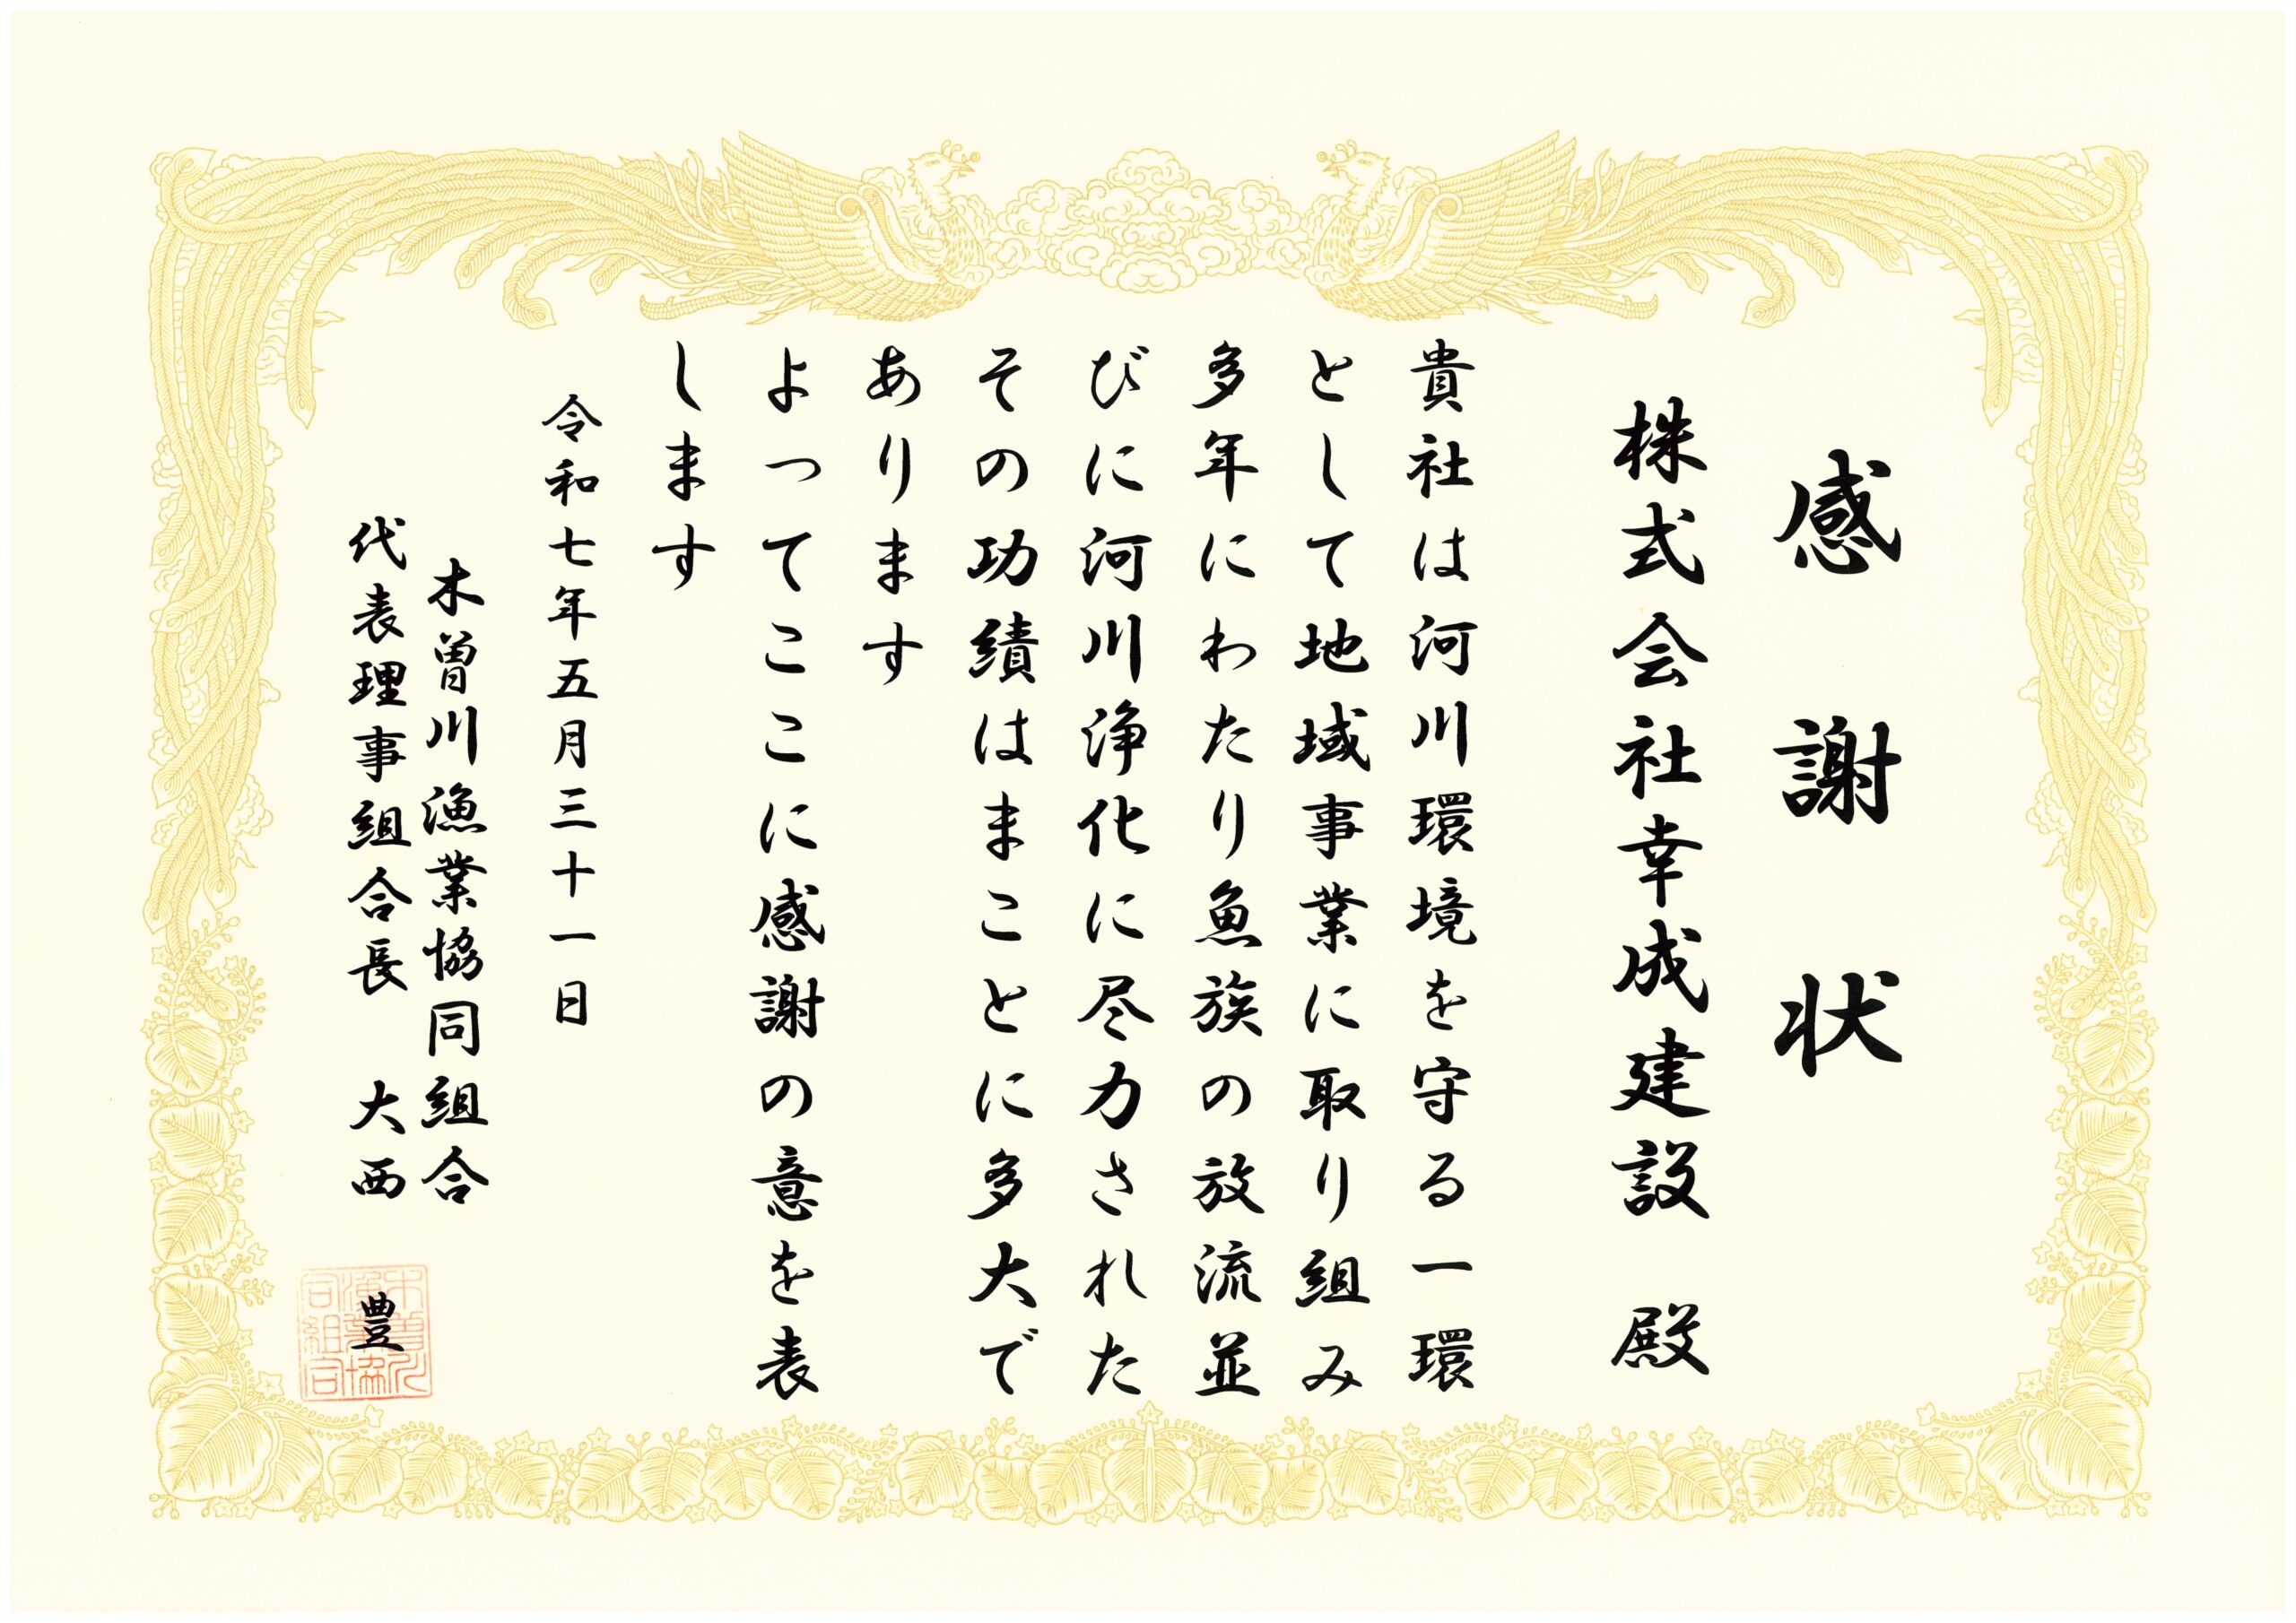 感謝状
株式会社幸成建設 殿
貴社は河川環境を守る一環
として地域事業に取り組み
多年にわたり魚族の放流並
びに河川浄化に尽力された
その功績はまことに多大で
あります
よってここに感謝の意を表
します
令和七年五月三十一日
木曽川漁業協同組合
代表理事組合長 大西 豊